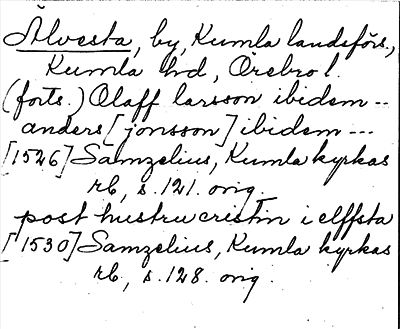 Älvesta, by, Kumla landsförs.,
Kumla hd, Örebro l.
(forts.) Olaff larsson ibidem --
anders [jonsson] ibidem ---
[1526] Samzelius, Kumla kyrkas
rb, s. 121. orig.
post hustru cristin i elffsta
[1530] Samzelius, Kumla kyrkas
rb, s. 128. orig.